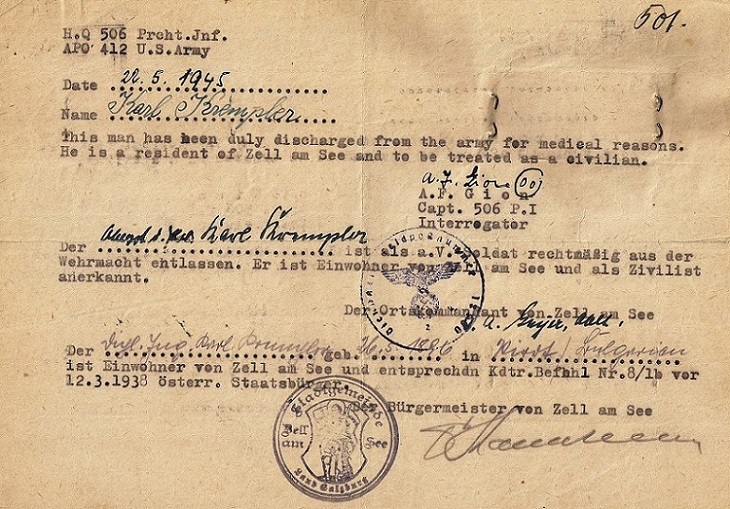 501.
H.Q 506 Prcht.Jnf.
APO 412 U.S.Army
Date 22.5.1945
Name Karl Krempler
This man has been duly discharged from the army for medical reasons.
He is a resident of Zell am See and to be treated as a civilian.
A.F. Gion
A.F. Gion
Capt. 506 P.I
Interrogator
Der Karl Krempler ist als a.V. Soldat rechtmäßig aus der
Wehrmacht entlassen. Er ist Einwohner von Zell am See und als Zivilist
anerkannt.
Der Ortskommandant von Zell am See
Der Dipl. Ing. Karl Krempler geb. 26.5.1896 in Bulgarien
ist Einwohner von Zell am See und entsprechdn Kdtr.Befbhl Nr.8/1b vor
12.3.1938 österr. Staatsbürger.
Der Bürgermeister von Zell am See
Stadtgemeinde
Zell am See
Land Salzburg